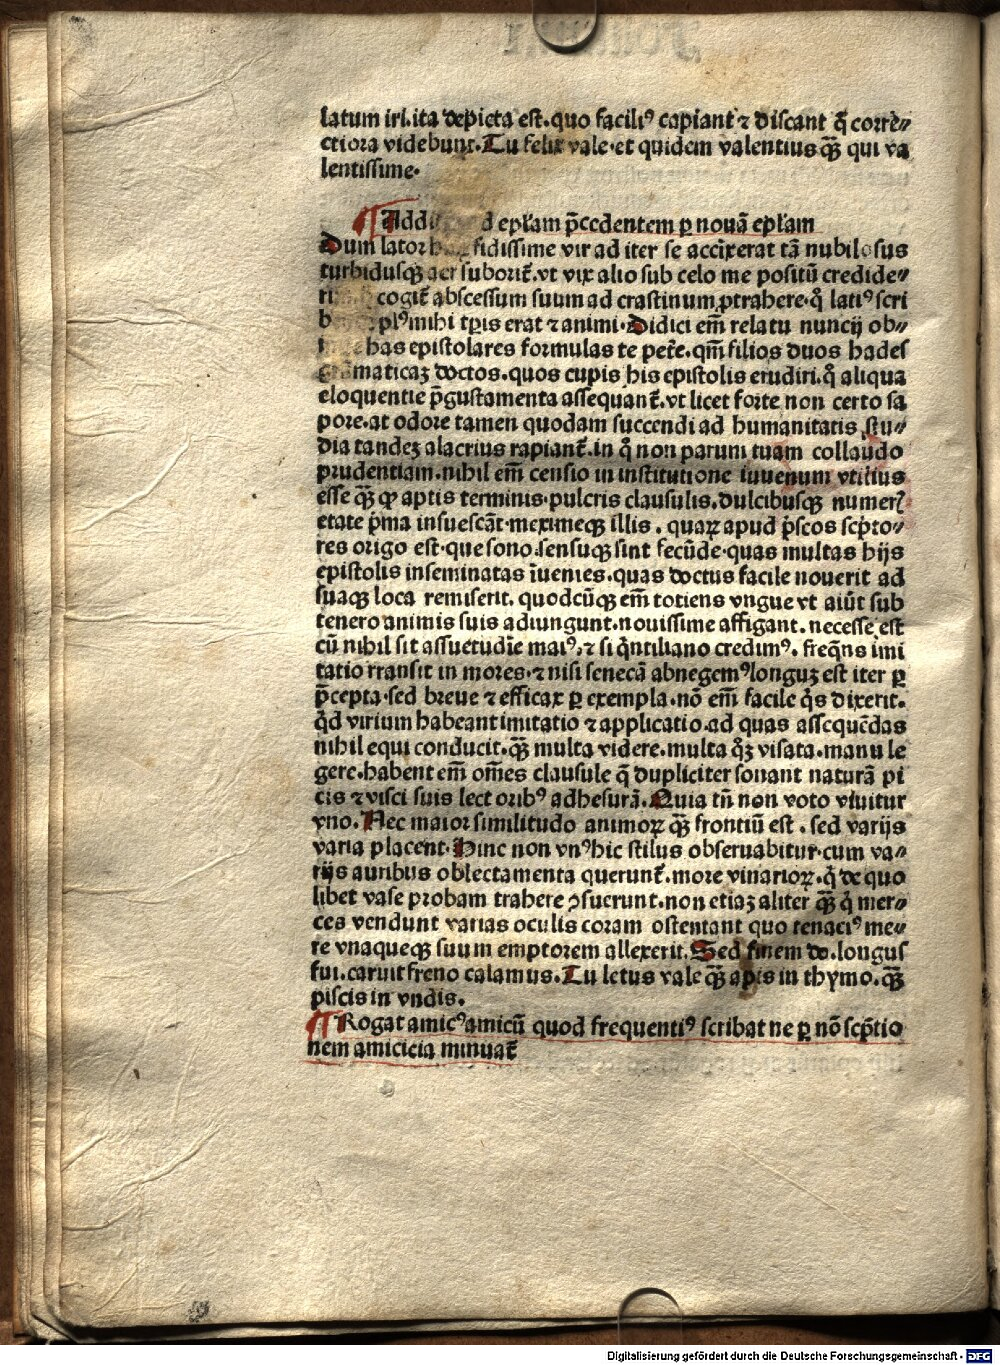 latum iri.ita depicta est.quo faciliꝰ capiant̃ ⁊ discant q̃ corre⸗
ctiora videbunt.Tu felix vale.et quidem valentius q̃ꝫ qui va
lentissime.
¶ Addi d epl̃am p̃cedentem ꝑ nouã epl̃am
Dum lator fidissime vir ad iter se accĩxerat tã nubilosus
turbidusqꝫ aer suborit̃.vt vix alio sub celo me positũ credide⸗
cogit̃ abscessum suum ad crastinum ꝓtrahere.q̊ latiꝰ scri
plꝰ mihi tꝑis erat ⁊ animi.Didici em̃ relatu nuncij ob⸗
has epistolares formulas te pete̾.qm̃ filios duos habes
grãmaticaꝫ doctos.quos cupis his epistolis erudiri.q̊ aliqua
eloquentie p̃gustamenta assequant̃.vt licet forte non certo sa
pore.at odore tamen quodam succendi ad humanitatis stu⸗
dia tandeꝫ alacrius rapiant̃.in q̊ non parum tuam collaudo
prudentiam.nihil em̃ censio in institutione iuuenum vtilius
esse q̃ꝫ ꝙ aptis terminis.pulcris clausulis.dulcibusqꝫ numer̃
etate p̃ma insuescãt.meximeqꝫ illis.quaꝝ apud p̃scos sc̃pto⸗
res origo est.que sono.sensuqꝫ sint fecũde.quas multas hijs
epistolis inseminatas ĩuenies.quas doctus facile nouerit ad
suaqꝫ loca remiserit.quodcũqꝫ em̃ totiens vngue vt aiũt sub
tenero animis suis adiungunt.nouissime affigant.necesse est
cũ nihil sit assuetudĩe maiꝰ.⁊ si q̃ntiliano credimꝰ.freq̃ns imi
tatio rransit in mores.⁊ nisi senecã abnegemꝰ longuꝫ est iter ꝑ
p̃cepta.sed breue ⁊ efficax ꝑ exempla.nõ em̃ facile q̃s dixerit.
q̃d virium habeant imitatio ⁊ applicatio.ad quas assequẽdas
nihil equi conducit.q̃ꝫ multa videre.multa q̊ꝫ visata.manu le
gere.habent em̃ om̃es clausule q̃ dupliciter sonant naturã pi
cis ⁊ visci suis lectoribꝰ adhesurã.Quia tñ non voto viuitur
vno.Nec maior similitudo animoꝝ q̃ꝫ frontiũ est.sed varijs
varia placent.Hinc non vnꝰ hic stilus obseruabitur.cum va⸗
rijs auribus oblectamenta querunt̃.more vinarioꝝ.q̇ de quo
libet vase probam trahere ɔsuerunt.non etiaꝫ aliter q̃ꝫ q̇ mer⸗
ces vendunt varias oculis coram ostentant quo tenaciꝰ me⸗
re vnaqueqꝫ suum emptorem allexerit.Sed finem do.longus
fui.caruit freno calamus.Tu letus vale q̃ꝫ apis in thymo.q̃ꝫ
piscis in vndis.
¶ Rogat amicꝰ amicũ quod frequentiꝰ scribat ne ꝑ nõ sc̃ptio
nem amicicia minuat̃
Digitalisierung gefördert durch die Deutsche Forschungsgemeinschaft - DFG